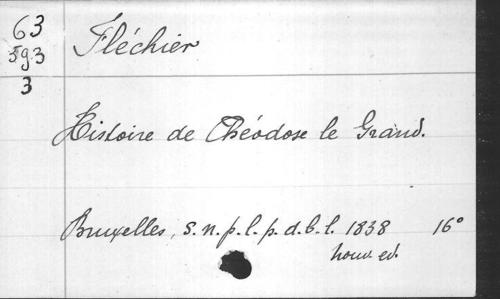 63
593
3
Fléchier
Histoire de Théodose le Grand.
Bruxelles, s.n.p.l.p.d.b.l. 1838 16°
nouv ed.